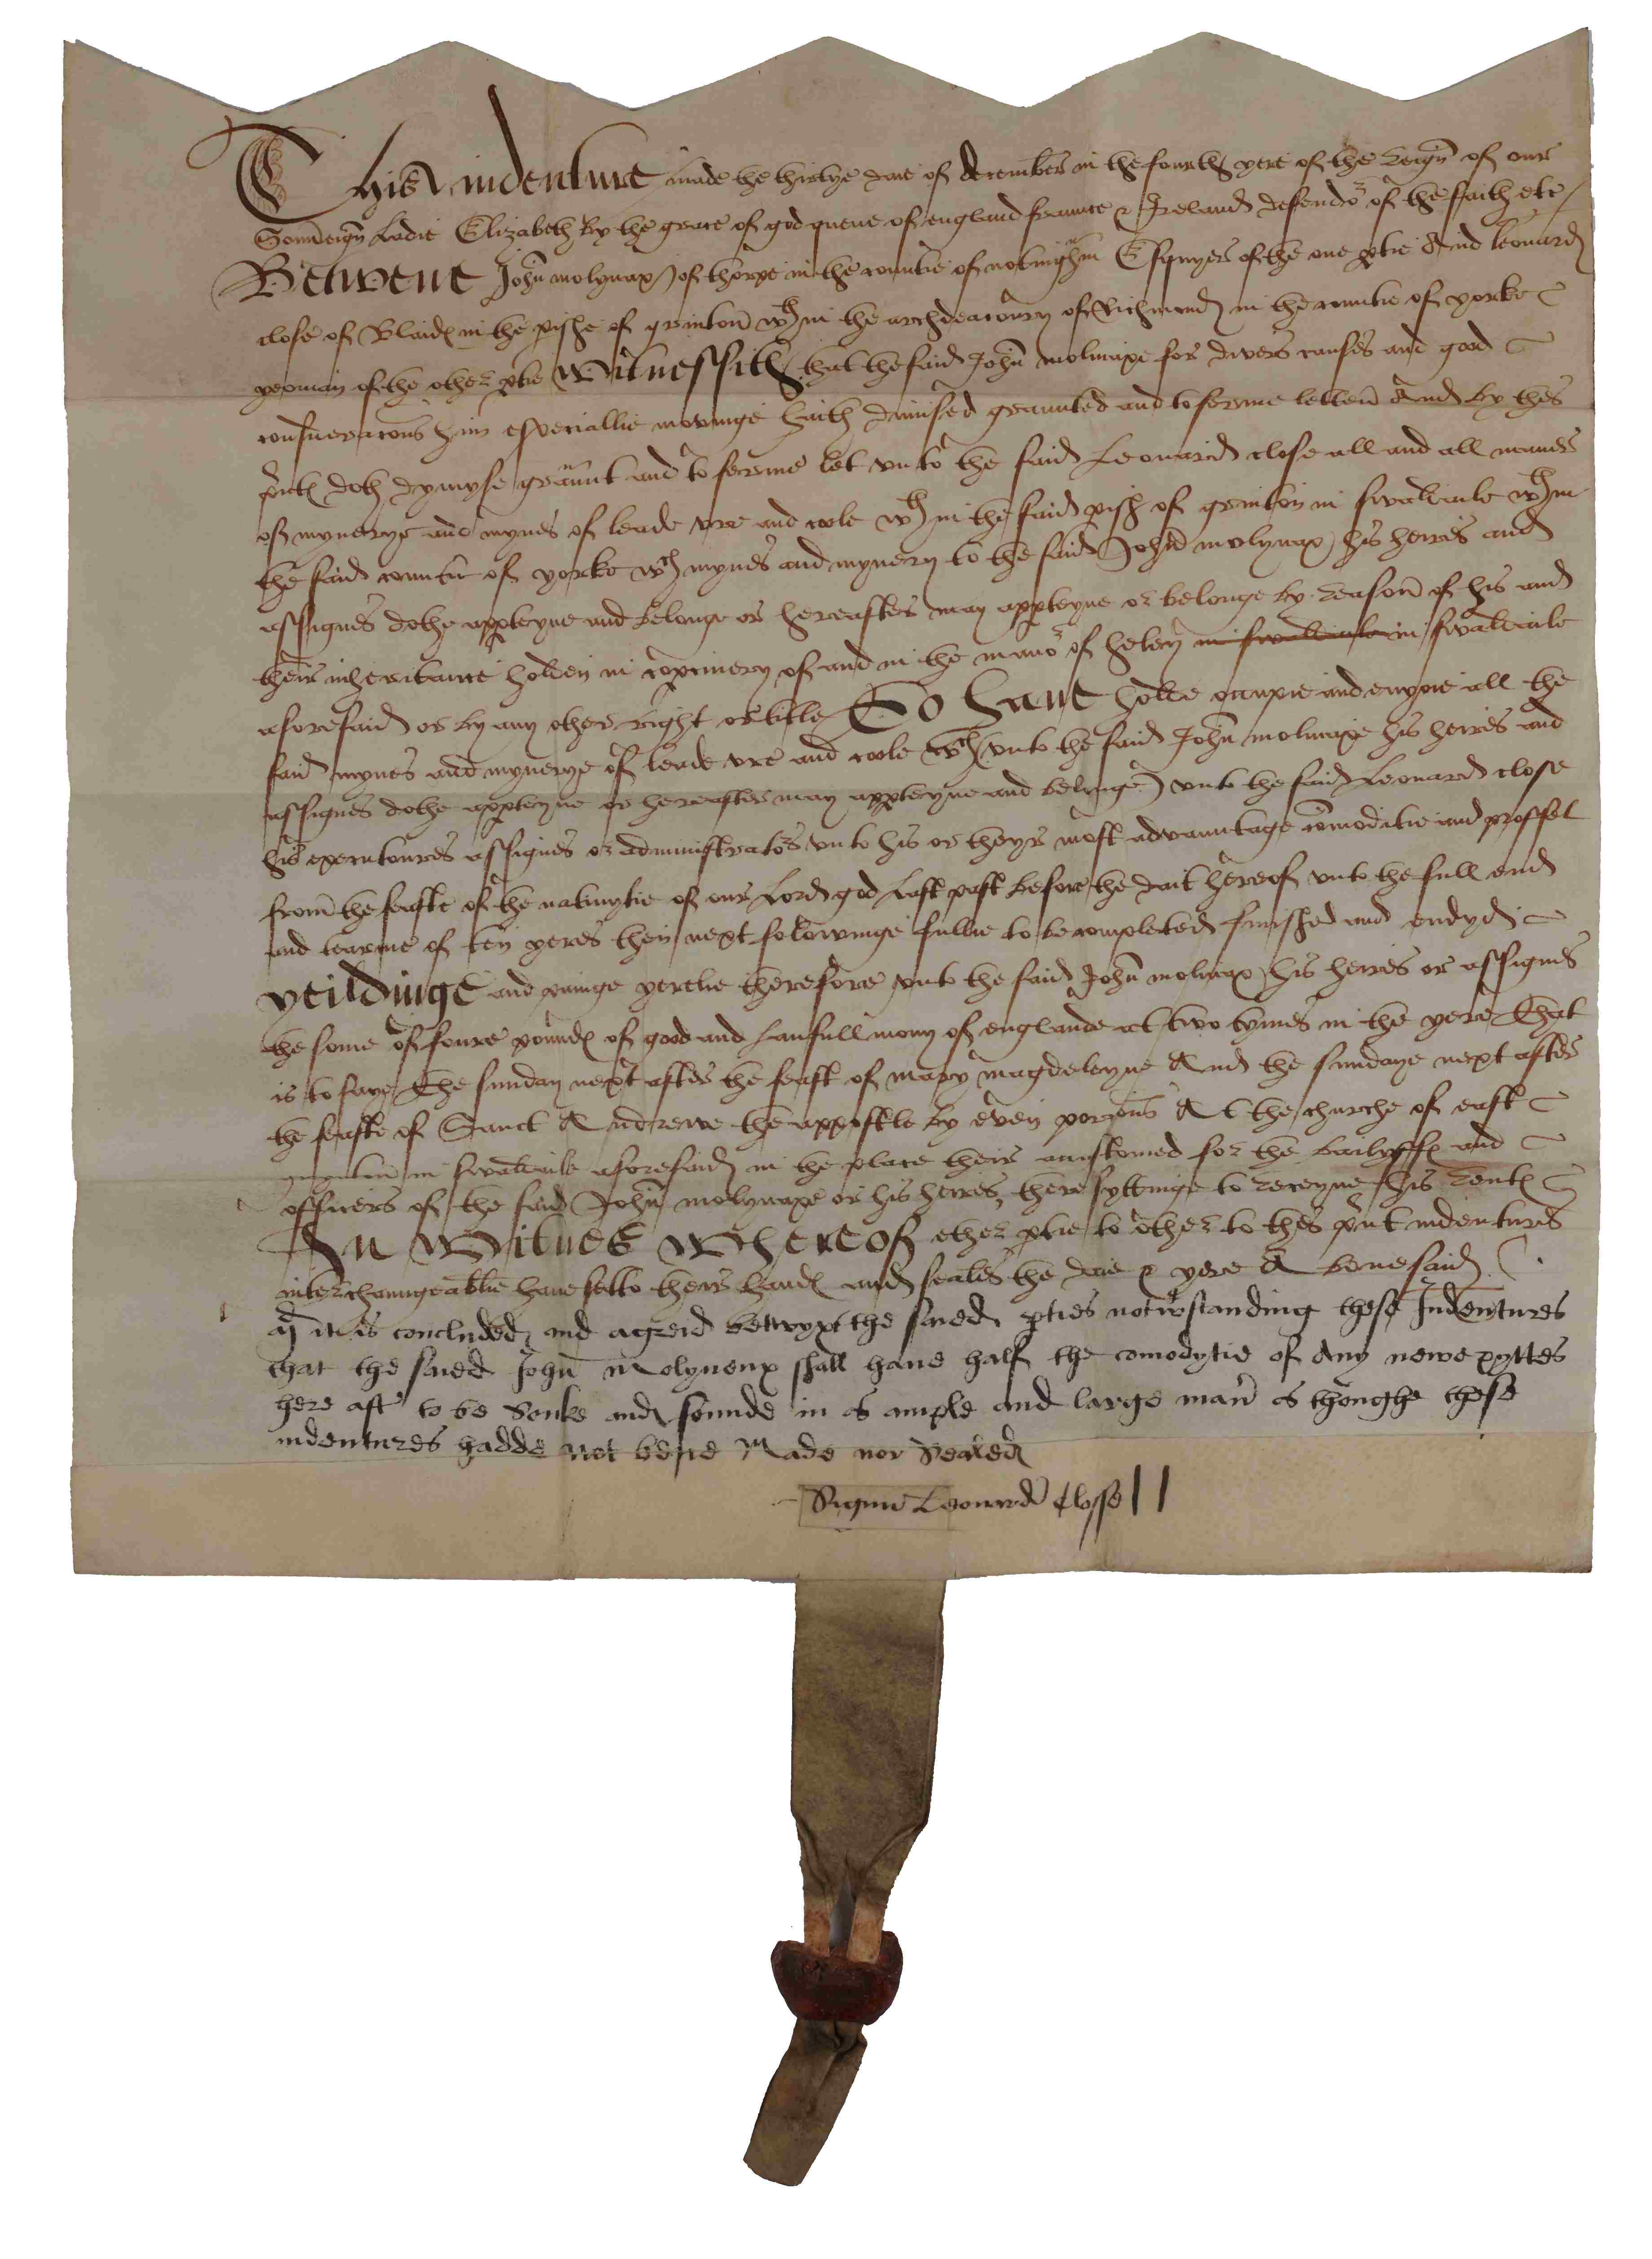 This indenture made the thirtye daie of december in the fourth yere of the Reign of our
Soveraign Ladie Elizabeth by the grace of god quene of england fraunce & Ireland defendor of the faith etc
Betwene John molynax of thorpe in the countie of notinghm Esquyer of the one ptie And leonard
close of Blaid in the pishe of grinton wth in the archdeaconry of Richmond in the countie of yorke
yeoman of the other ptie Witnessith that the said John molinaxe for divers causes and good
consideracons him especiallie movinge haith dimised graunted and to ferme letten And by thes
pnts doth dymyse graunt and to ferme let unto the said Leonard close all and all maner
of mynerye and mynes of leade ure and cole wth in the said pish of grinton in swaldaile wthin
the said countie of yorke wch mynes and mynery to the said John molynax his heires and
assignes dothe appteyne and belonge or hereafter may appteyne or belonge by reason of his and
their inheritance holden in copcinery of and in the manor of heley in swaldaile in swaldaile
aforesaid or by any other right or title To have holde occupie and enyoie all the
said mynes and mynerye of leade ure and cole wch unto the said John molinaxe his heires and
assignes dothe appteyne or hereafter may appteyne and belonge unto the said Leonard close
his executoures assignes or administrators unto his or theyr most advauntage comoditie and proffet
from the feaste of the nativytie of our Lord god last past before the dait hereof unto the full end
and tearme of ten yeres then next folowinge fullie to be completed finished and endyd
yeildinge and painge yerelie therefore unto the said John molinax his heires or assignes
the some of foure pounds of good and lanfull mony of englande at two tymes in the yere That
is to saye The sunday next after the feast of mary magdeleyne And the sundaye next after
the feaste of Sanct Andrewe the appostle by even porcons At the churche of east
grinton in swaldaile aforesaid in the place their accustomed for the bailyffs and
officers of the said John molynaxe or his heires there syttinge to receyve his Rents
In Witnes Whereof ether ptie to other to thes pnt indentures
interchaungeablie have setto their hands and seales the daie & yere Abovesaid
And it is concluded and agreid betwyxt the saied pties notwtstanding these Indentures
that the saied John Molyneux shall have half the comodytie of Any newe pyttes
here aft to be Sonke and founde in as ample and large man as thoughe these
indentures hadde not bene Made nor Sealed
Signu Leonardi Closse